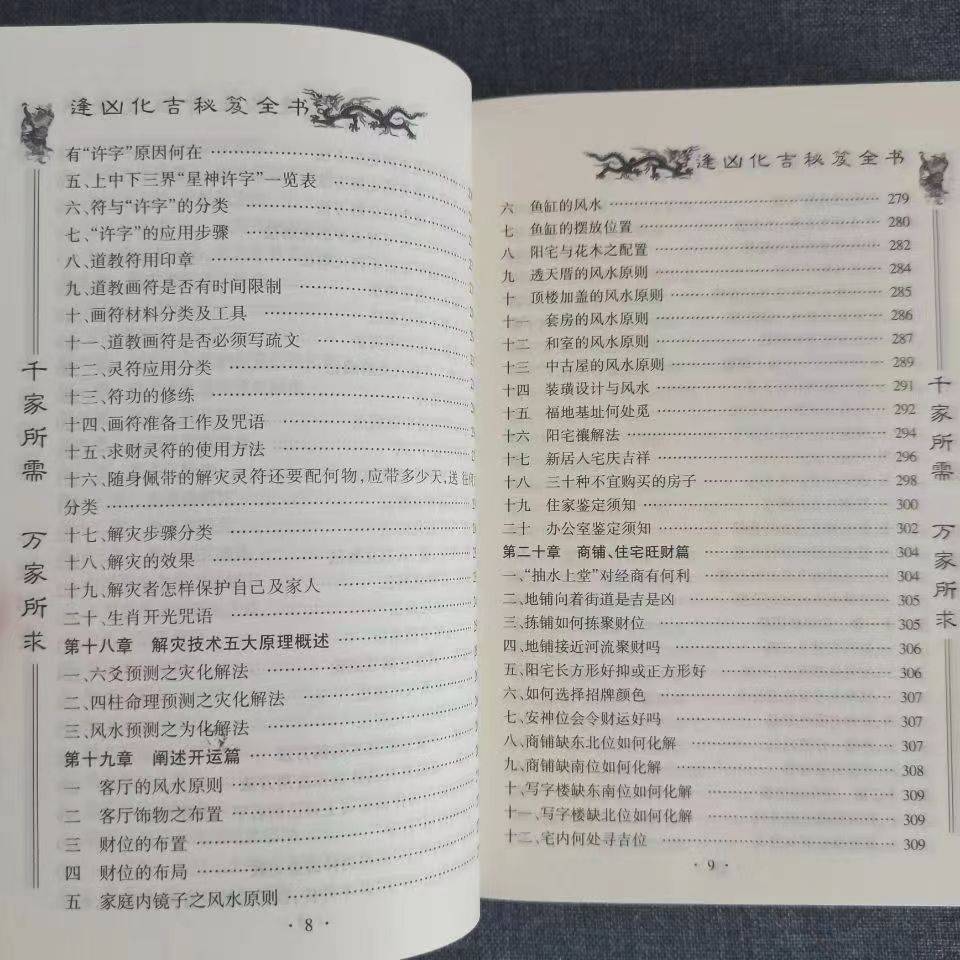 逢凶化吉秘笈全书
有“许字”原因何在
五、上中下三界“星神许字”一览表
六、符与“许字”的分类
七、“许字”的应用步骤
八、道教符用印章
九、道教画符是否有时间限制
十、画符材料分类及工具
十一、道教画符是否必须写疏文
十二、灵符应用分类
十三、符功的修练
十四、画符准备工作及咒语
十五、求财灵符的使用方法
十六、随身佩带的解灾灵符还要配何物,应带多少天,送
分类
十七、解灾步骤分类
十八、解灾的效果
十九、解灾者怎样保护自己及家人
二十、生肖开光咒语
第十八章 解灾技术五大原理概述
一、六爻预测之灾化解法
二、四柱命理预测之灾化解法
三、风水预测之为化解法
第十九章 阐述开运篇
一 客厅的风水原则
二 客厅饰物之布置
三 财位的布置
四 财位的布局
五 家庭内镜子之风水原则
· 8 ·
千家所需 万家所求
逢凶化吉秘笈全书
六 鱼缸的风水 279
七 鱼缸的摆放位置 280
八 阳宅与花木之配置 282
九 透天厝的风水原则 284
十 顶楼加盖的风水原则 285
十一 套房的风水原则 286
十二 和室的风水原则 287
十三 中古屋的风水原则 289
十四 装璜设计与风水 291
十五 福地基址何处觅 292
十六 阳宅禳解法 294
十七 新居人宅庆吉祥 296
十八 三十种不宜购买的房子 298
十九 住家鉴定须知 300
二十 办公室鉴定须知 302
第二十章 商铺、住宅旺财篇 304
一、“抽水上堂”对经商有何利 304
二、地铺向着街道是吉是凶 305
三、拣铺如何拣聚财位 305
四、地铺接近河流聚财吗 306
五、阳宅长方形好抑或正方形好 306
六、如何选择招牌颜色 307
七、安神位会令财运好吗 307
八、商铺缺东北位如何化解 307
九、商铺缺南位如何化解 308
十、写字楼缺东南位如何化解 309
十一、写字楼缺北位如何化解 309
十二、宅内何处寻吉位 309
· 9 ·
千家所需 万家所求